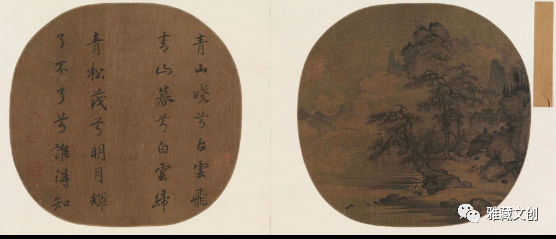 青山曉兮白雲飛
青山暮兮白雲歸
青松茂兮明月輝
了不了兮誰得知
雅藏文创